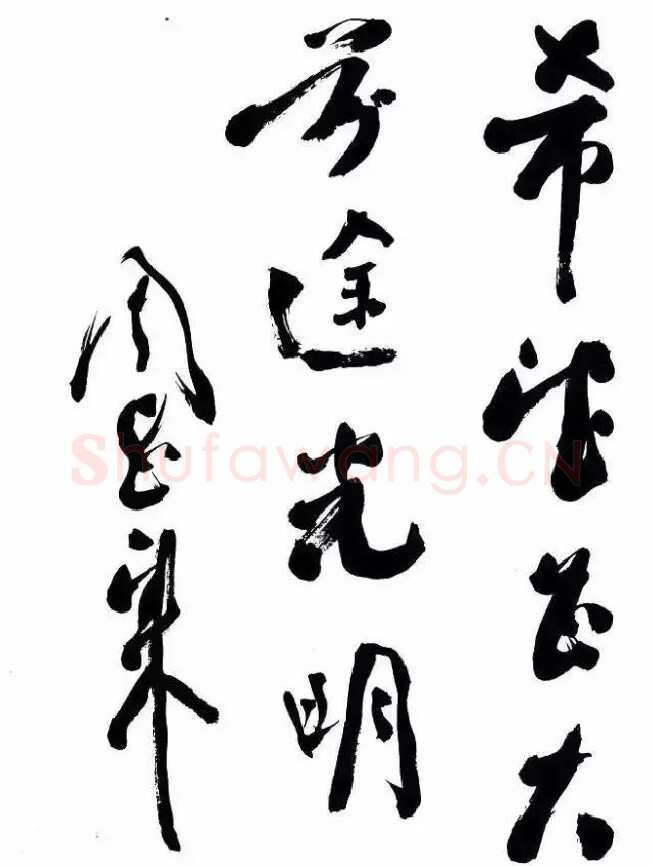 希望甚大
前途光明
周恩来
Shufawang.CN